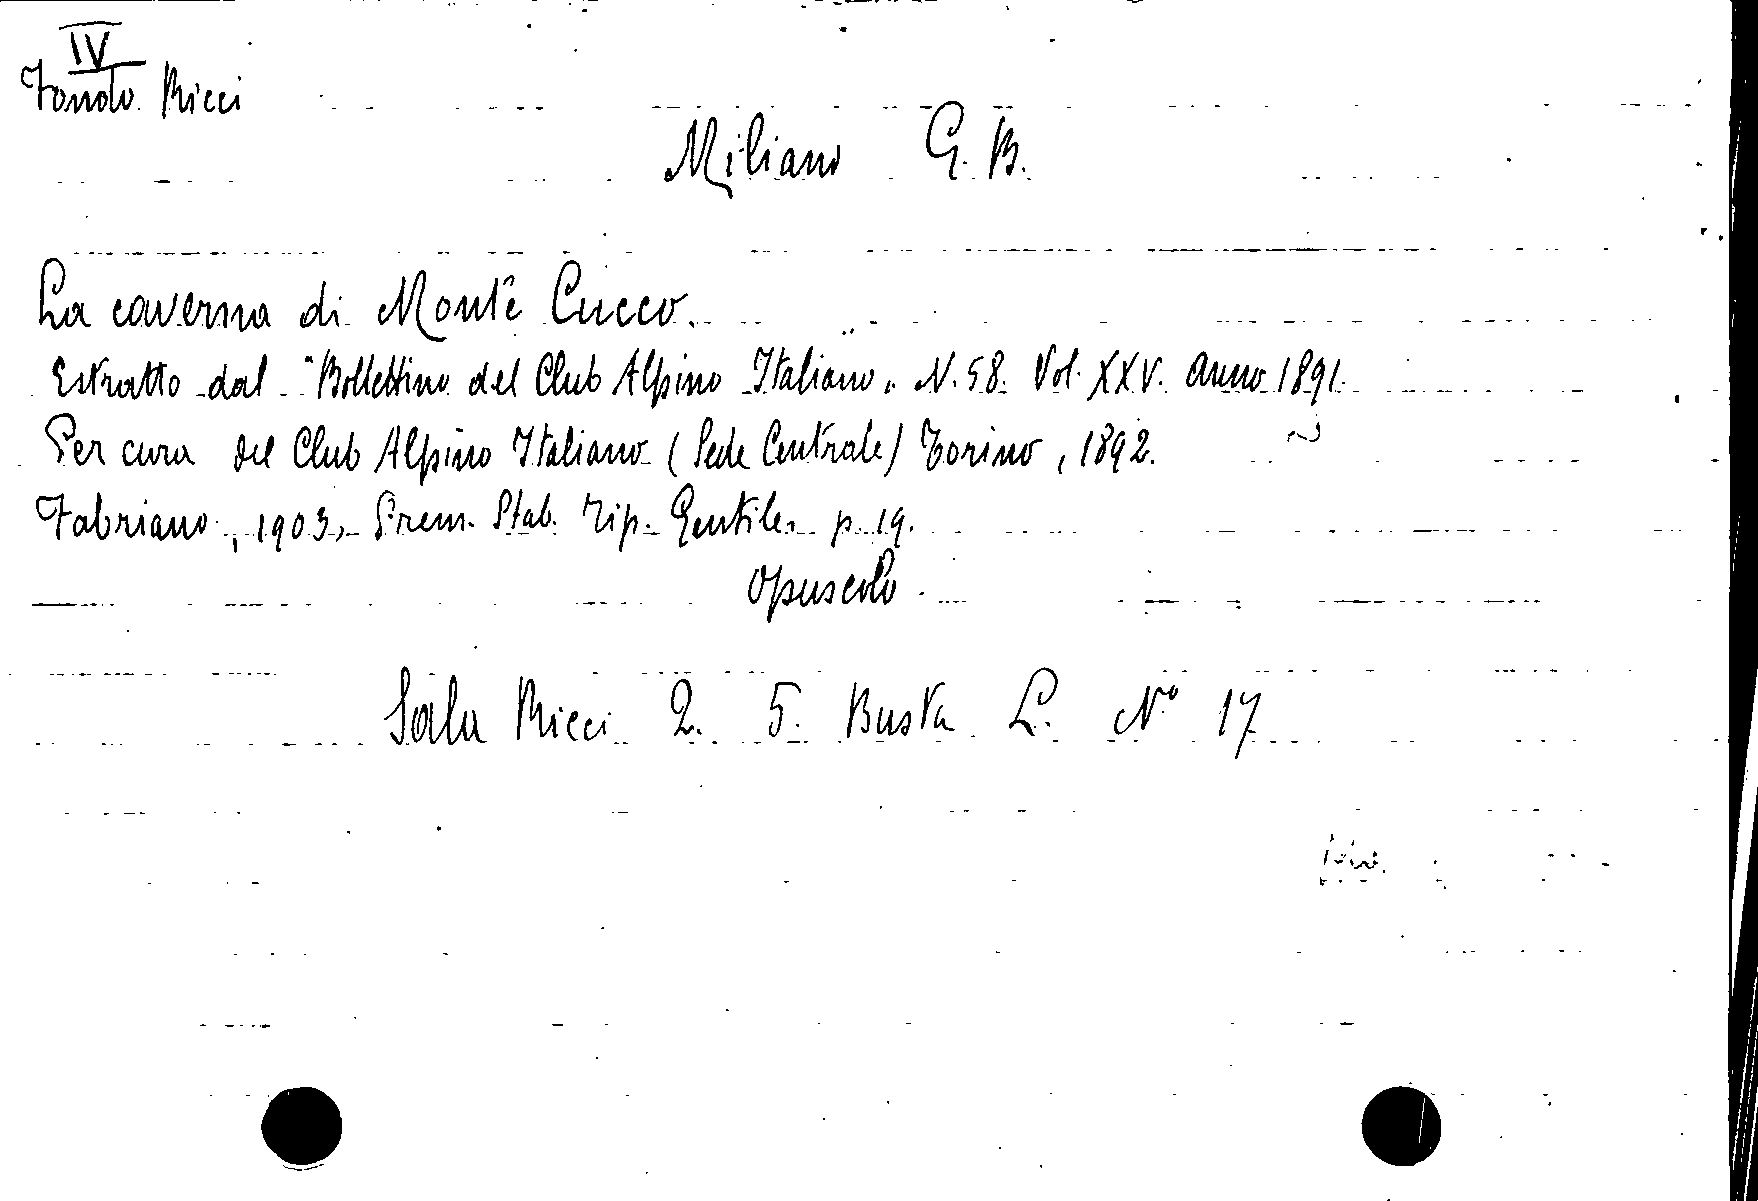 IV
Fondo Ricci
Miliano G. B.
La caverna di Monte Cucco.
Estratto dal "Bollettino del Club Alpino Italiano" N. 58. Vol. XXV. Anno 1891.
Per cura del Club Alpino Italiano (Sede Centrale) Torino, 1892.
Fabriano, 1903, Prem. Stab. Tip. Gentile, p. 19.
Opuscolo
Sala Ricci 2. 5. Busta L. Nº 17